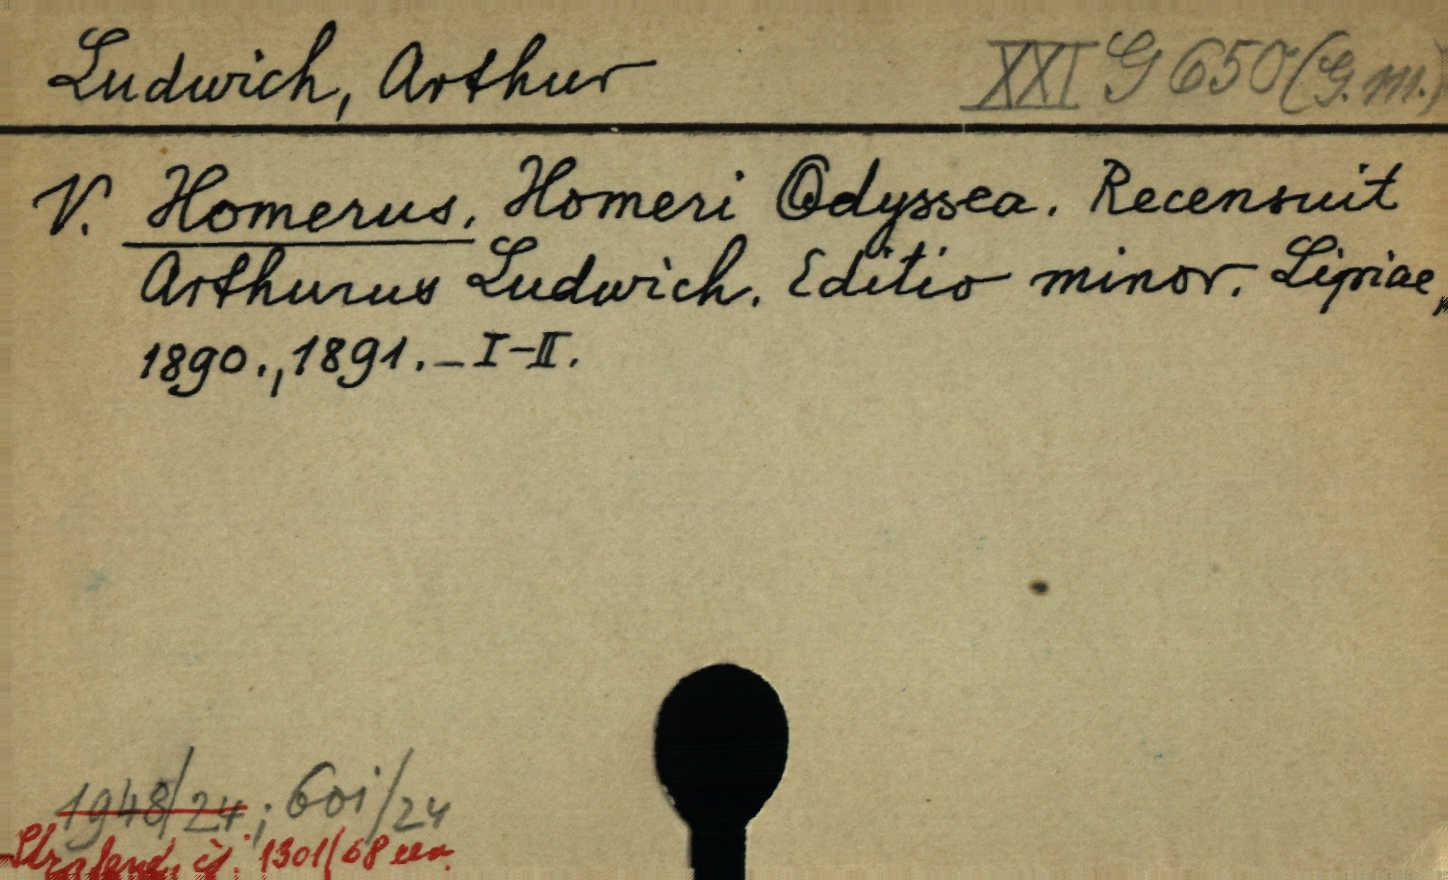 Ludwich, Arthur
XXI G 650 (G.m.)
V. Homerus, Homeri Odyssea. Recensuit
Arthurus Ludwich. Editio minor. Lipsiae,
1890., 1891. - I-II.
1948/24; 601/24
1301/68